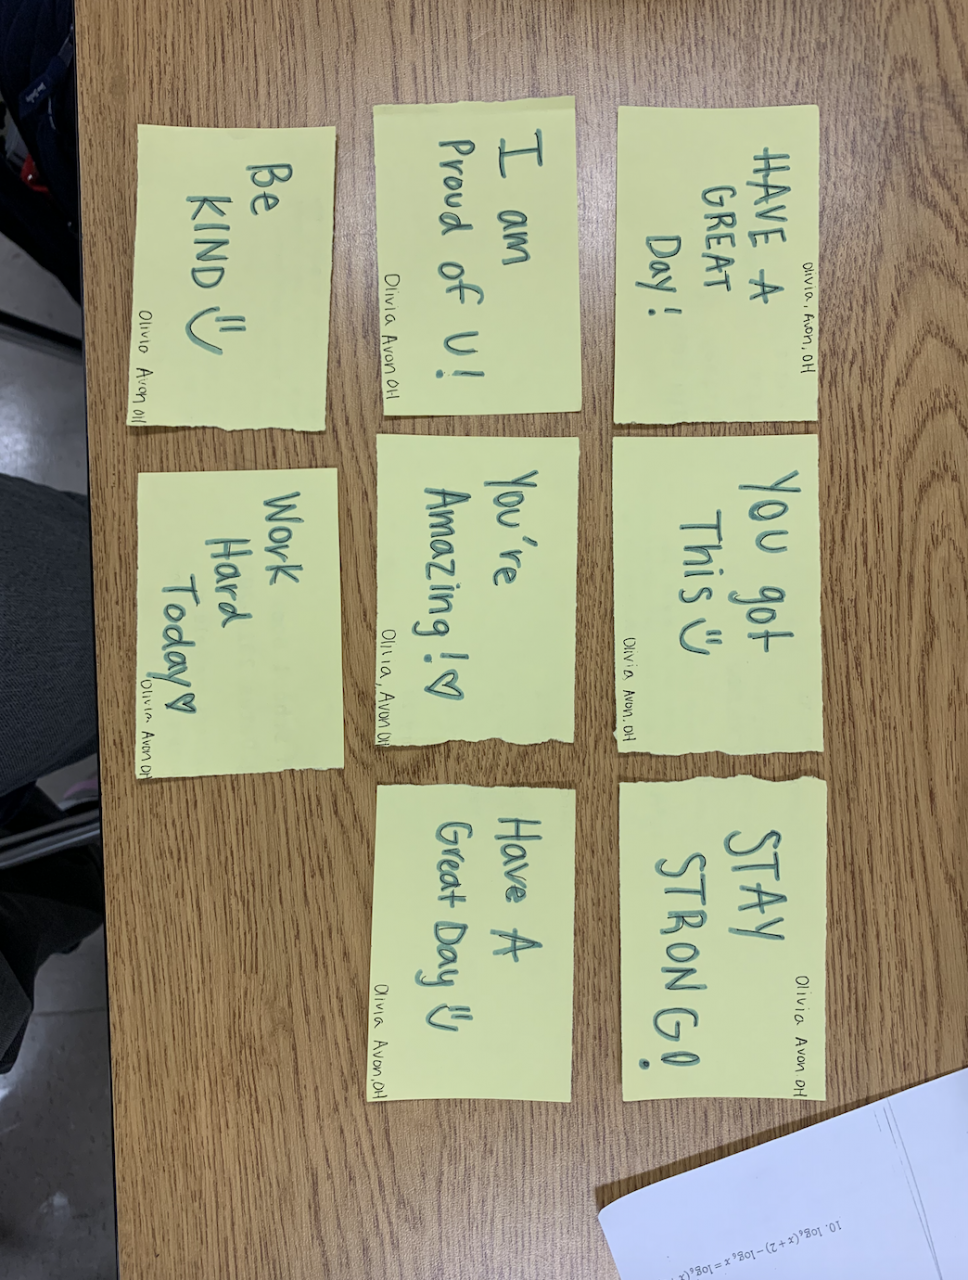 HAVE A
GREAT
Day!
Olivia, Avon, OH
You got
This
Olivia Avon, OH
STAY
STRONG!
Olivia Avon OH
I am
Proud of U!
Olivia Avon OH
You're
Amazing!
Olivia, Avon OH
Have A
Great Day
Olivia Avon, OH
Be
KIND
Olivia Avon OH
Work
Hard
Today
Olivia Avon OH
10. log₆(x+2)−log₆x=log₆(